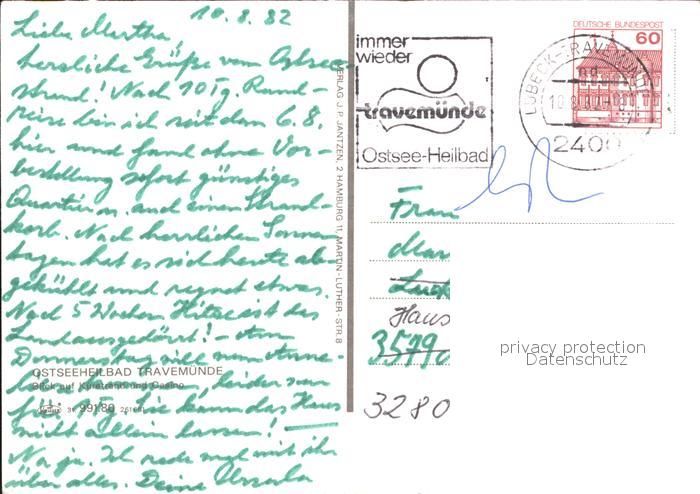 10.8.82
Liebe Martha,
herzliche Grüße vom Ostsee-
strand! Nach 10 Tg. Rund-
reise bin ich seit dem 6.8.
hier und fand ohne Vor-
bestellung sofort günstiges
Quartier u. auch einen Strand-
korb. Nach herrlichen Sonnen-
tagen hat es sich heute abe-
gekühlt und regnet etwas.
Nach 5 Wochen Hitze ist das
Land ausgedörrt! - Am
Donnerstag will
OSTSEEHEILBAD TRAVEMÜNDE
Blick auf Kurstrand und Casino
leider nur
für Tg. Sie kann das Haus
nicht allein lassen!
Na ja. Ich rede mal mit ihr
über alles. Deine Ursula
VERLAG J. P. JANTZEN, 2 HAMBURG 11, MARTIN-LUTHER-STR. 8
immer
wieder
travemünde
Ostsee-Heilbad
DEUTSCHE BUNDESPOST
60
LÜBECK-TRAVEMÜNDE
2400
Frau
Mar
Haus
3579
3280
privacy protection
Datenschutz